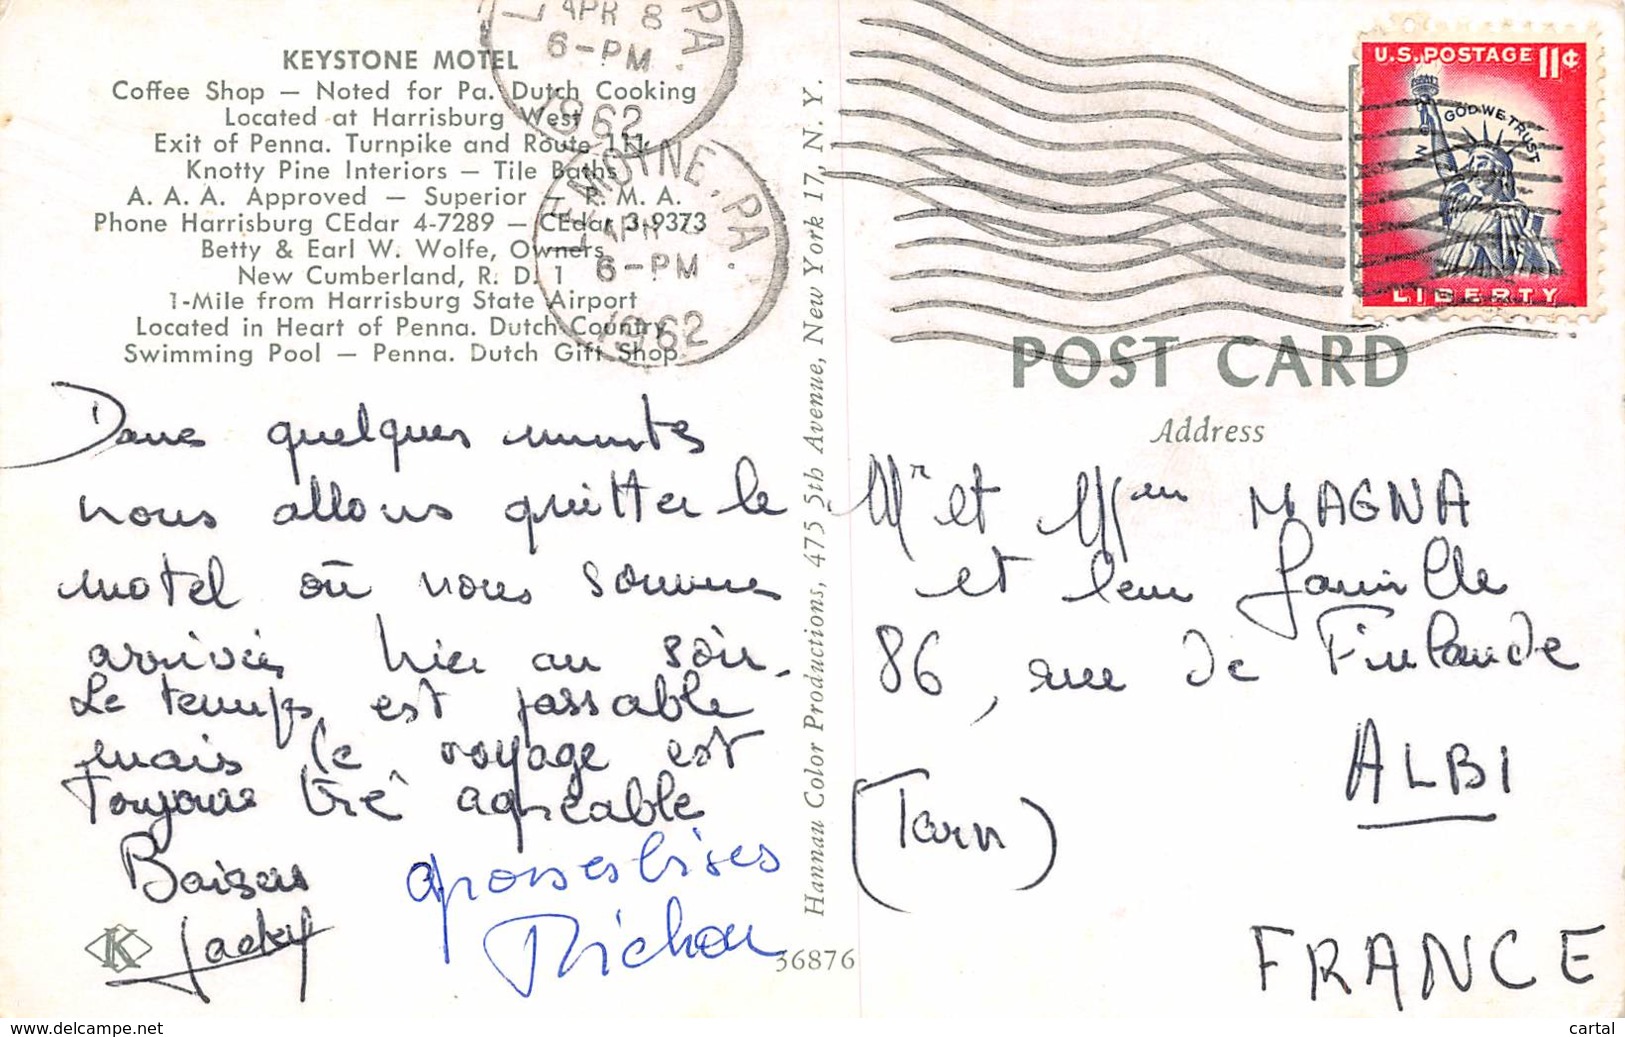 KEYSTONE MOTEL
Coffee Shop — Noted for Pa. Dutch Cooking
Located at Harrisburg West
Exit of Penna. Turnpike and Route 111
Knotty Pine Interiors — Tile Baths
A. A. A. Approved — Superior — P. M. A.
Phone Harrisburg CEdar 4-7289 — CEdar 3-9373
Betty & Earl W. Wolfe, Owners
New Cumberland, R. D. 1
1-Mile from Harrisburg State Airport
Located in Heart of Penna. Dutch Country
Swimming Pool — Penna. Dutch Gift Shop
PA.
APR 8
6-PM
1962
LEMOYNE, PA.
APR
6-PM
1962
Dans quelques minutes
nous allons quitter le
motel où nous sommes
arrivés hier au soir.
Le temps est passable
mais le voyage est
toujours trè agréable
Baisers
Jacky
grosses bises
K
Hannau Color Productions, 475 5th Avenue, New York 17, N. Y.
36876
U.S. POSTAGE 11¢
IN GOD WE TRUST
LIBERTY
POST CARD
Address
Mr et Mme MAGNA
et leur famille
86, rue de Finlande
ALBI
(Tarn)
FRANCE
www.delcampe.net
cartal